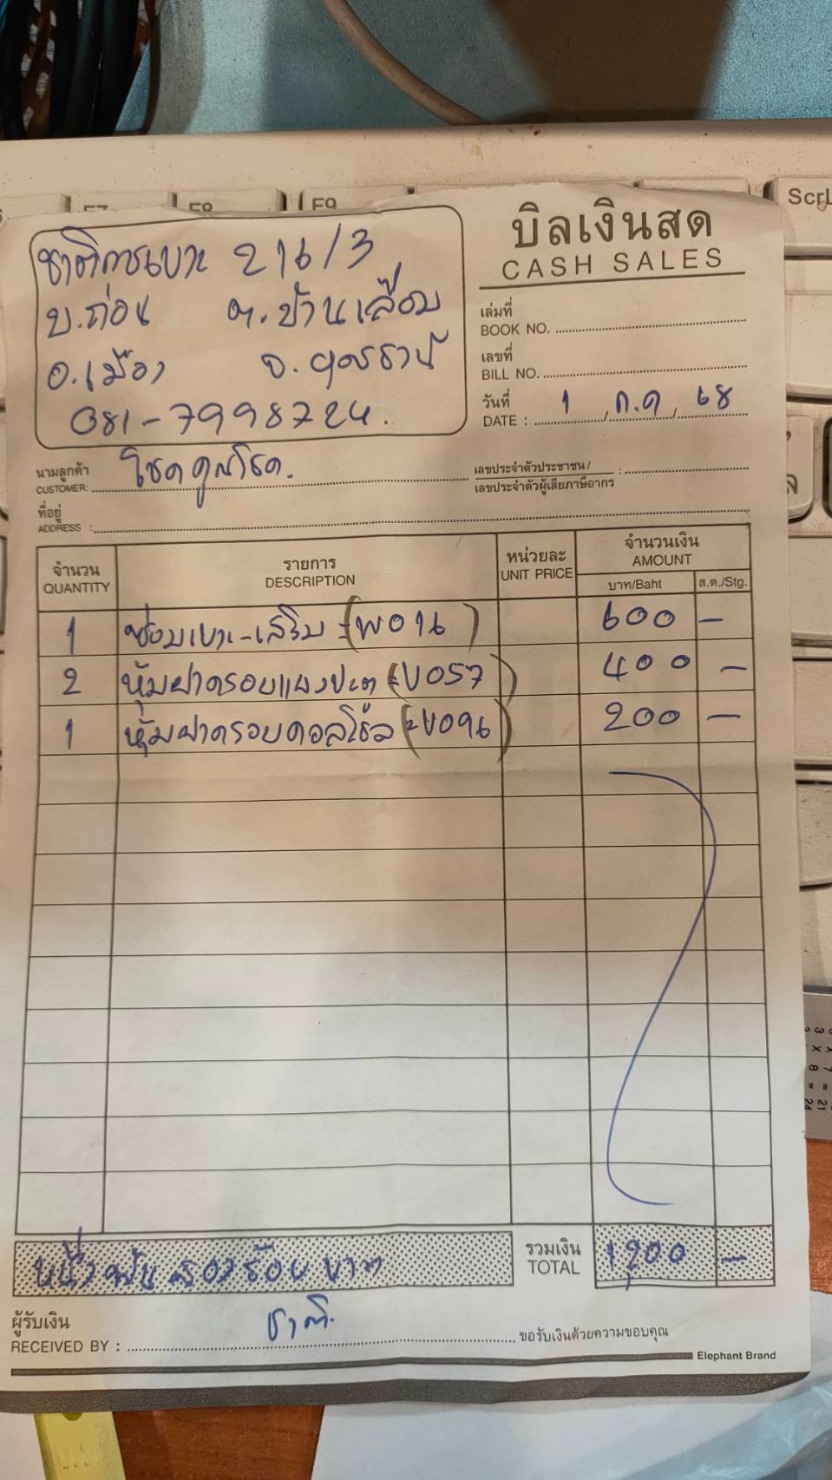 F7 F8 F9 Scrl
ชาติการเบาะ 216/3
บ.ถ่อน ต.บ้านเลื่อม
อ.เมือง จ.อุดรธานี
081-7998724.
บิลเงินสด
CASH SALES
เล่มที่
BOOK NO.
เลขที่
BILL NO.
วันที่
DATE : 1 ก.ค 68
นามลูกค้า
CUSTOMER: โชคคูณโชค.
เลขประจำตัวประชาชน/
เลขประจำตัวผู้เสียภาษีอากร :
ที่อยู่
ADDRESS :
จำนวน รายการ หน่วยละ จำนวนเงิน
QUANTITY DESCRIPTION UNIT PRICE AMOUNT
บาท/Baht ส.ต./Stg.
1 ซ่อมเบาะ-เสริม 600 -
2 หุ้มฝาครอบแผงประตู 400 -
1 หุ้มฝาครอบคอลโซล 200 -
หนึ่งพันสองร้อยบาท
รวมเงิน
TOTAL 1,200 -
ผู้รับเงิน
RECEIVED BY : ชาติ. ขอรับเงินด้วยความขอบคุณ
Elephant Brand